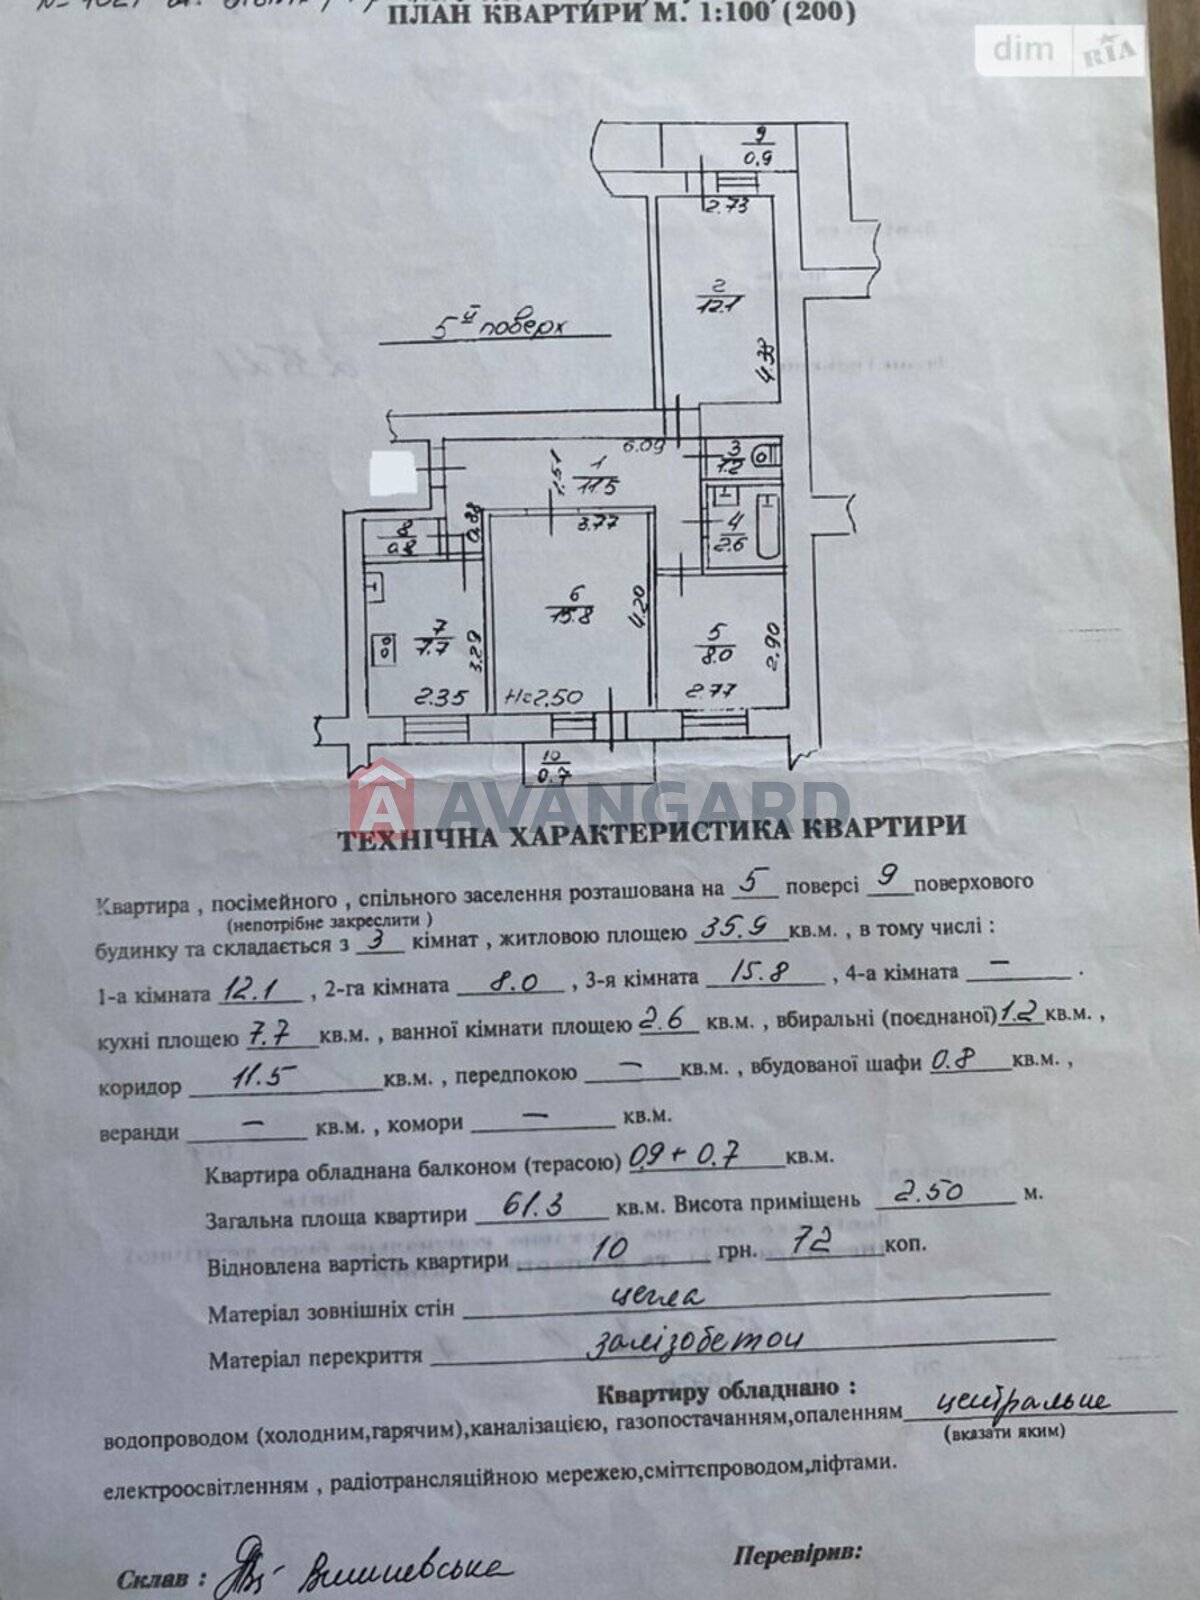 ПЛАН КВАРТИРИ М. 1:100 (200)
dim RIA
9
0,9
2.73
2
12.1
4.38
5й поверх
6.09
3
1.2
1
11.5
1.51
3.77
4
2.6
8
0.8
0.88
6
15.8
4.20
7
7.7
3.29
5
8.0
2.90
2.35
H=2.50
2.77
10
0.7
AVANGARD
ТЕХНІЧНА ХАРАКТЕРИСТИКА КВАРТИРИ
Квартира , посімейного , спільного заселення розташована на 5 поверсі 9 поверхового
(непотрібне закреслити )
будинку та складається з 3 кімнат , житловою площею 35.9 кв.м. , в тому числі :
1-а кімната 12.1 , 2-га кімната 8.0 , 3-я кімната 15.8 , 4-а кімната — .
кухні площею 7.7 кв.м. , ванної кімнати площею 2.6 кв.м. , вбиральні (поєднаної) 1.2 кв.м. ,
коридор 11.5 кв.м. , передпокою — кв.м. , вбудованої шафи 0.8 кв.м. ,
веранди — кв.м. , комори — кв.м.
Квартира обладнана балконом (терасою) 0,9 + 0.7 кв.м.
Загальна площа квартири 61.3 кв.м. Висота приміщень 2.50 м.
Відновлена вартість квартири 10 грн. 72 коп.
Матеріал зовнішніх стін цегла
Матеріал перекриття залізобетон
Квартиру обладнано :
водопроводом (холодним,гарячим),каналізацією, газопостачанням,опаленням центральне
(вказати яким)
електроосвітленням , радіотрансляційною мережею,сміттєпроводом,ліфтами.
Склав :
Перевірив: